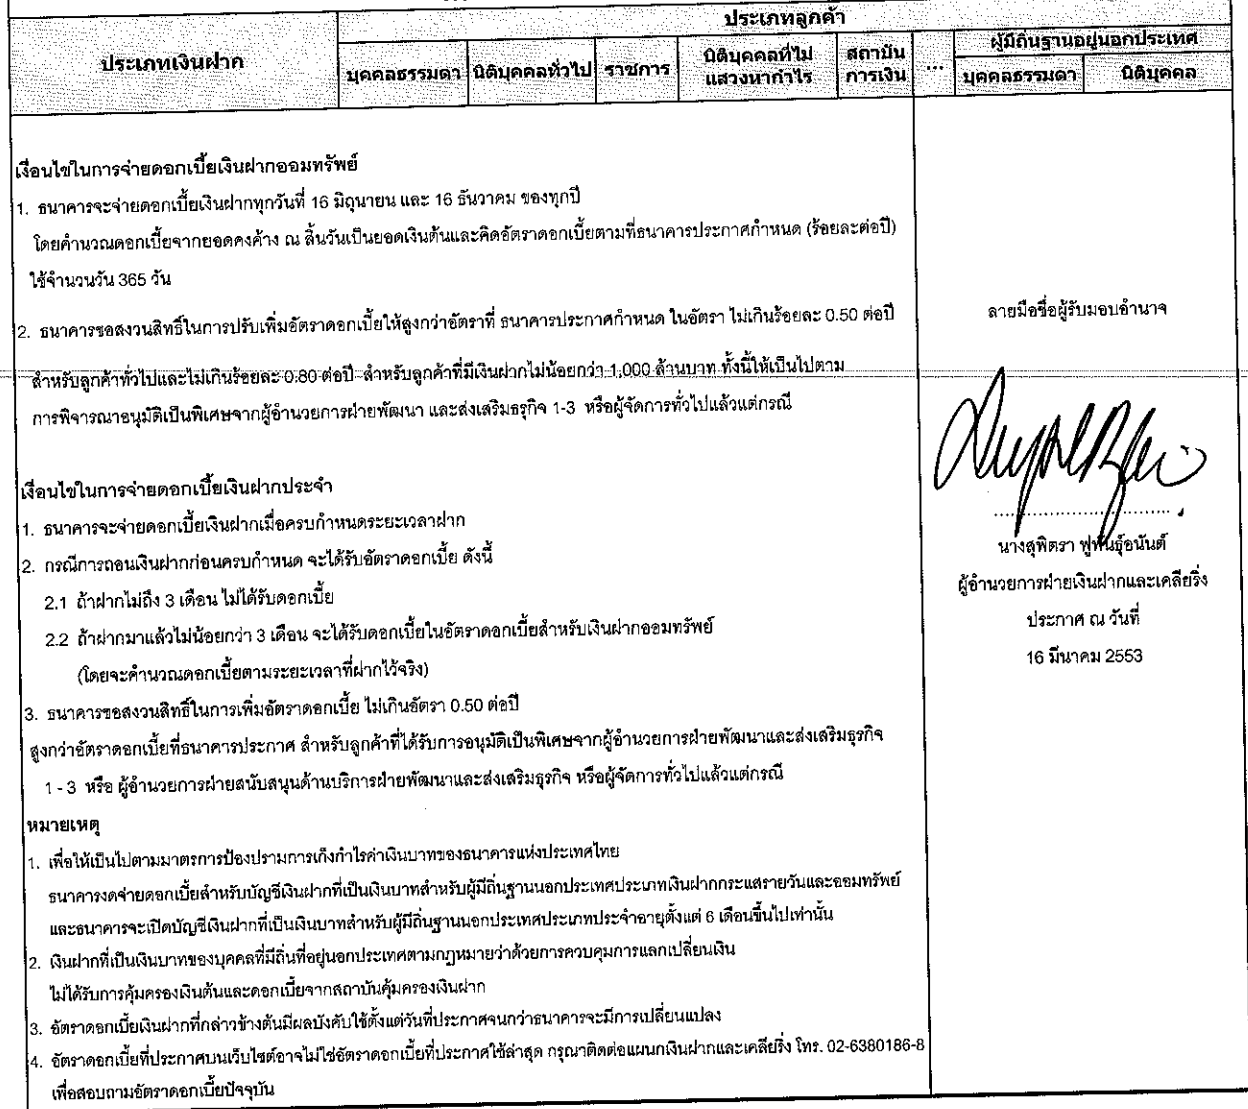 ประเภทเงินฝาก
ประเภทลูกค้า
บุคคลธรรมดา
นิติบุคคลทั่วไป
ราชการ
นิติบุคคลที่ไม่
แสวงหากำไร
สถาบัน
การเงิน
...
ผู้มีถิ่นฐานอยู่นอกประเทศ
บุคคลธรรมดา
นิติบุคคล
เงื่อนไขในการจ่ายดอกเบี้ยเงินฝากออมทรัพย์
1. ธนาคารจะจ่ายดอกเบี้ยเงินฝากทุกวันที่ 16 มิถุนายน และ 16 ธันวาคม ของทุกปี
โดยคำนวณดอกเบี้ยจากยอดคงค้าง ณ สิ้นวันเป็นยอดเงินต้นและคิดอัตราดอกเบี้ยตามที่ธนาคารประกาศกำหนด (ร้อยละต่อปี)
ใช้จำนวนวัน 365 วัน
2. ธนาคารขอสงวนสิทธิ์ในการปรับเพิ่มอัตราดอกเบี้ยให้สูงกว่าอัตราที่ ธนาคารประกาศกำหนด ในอัตรา ไม่เกินร้อยละ 0.50 ต่อปี
สำหรับลูกค้าทั่วไปและไม่เกินร้อยละ 0.80 ต่อปี สำหรับลูกค้าที่มีเงินฝากไม่น้อยกว่า 1,000 ล้านบาท ทั้งนี้ให้เป็นไปตาม
การพิจารณาอนุมัติเป็นพิเศษจากผู้อำนวยการฝ่ายพัฒนา และส่งเสริมธุรกิจ 1-3 หรือผู้จัดการทั่วไปแล้วแต่กรณี
เงื่อนไขในการจ่ายดอกเบี้ยเงินฝากประจำ
1. ธนาคารจะจ่ายดอกเบี้ยเงินฝากเมื่อครบกำหนดระยะเวลาฝาก
2. กรณีการถอนเงินฝากก่อนครบกำหนด จะได้รับอัตราดอกเบี้ย ดังนี้
2.1 ถ้าฝากไม่ถึง 3 เดือน ไม่ได้รับดอกเบี้ย
2.2 ถ้าฝากมาแล้วไม่น้อยกว่า 3 เดือน จะได้รับดอกเบี้ยในอัตราดอกเบี้ยสำหรับเงินฝากออมทรัพย์
(โดยจะคำนวณดอกเบี้ยตามระยะเวลาที่ฝากไว้จริง)
3. ธนาคารขอสงวนสิทธิ์ในการเพิ่มอัตราดอกเบี้ย ไม่เกินอัตรา 0.50 ต่อปี
สูงกว่าอัตราดอกเบี้ยที่ธนาคารประกาศ สำหรับลูกค้าที่ได้รับการอนุมัติเป็นพิเศษจากผู้อำนวยการฝ่ายพัฒนาและส่งเสริมธุรกิจ
1 - 3 หรือ ผู้อำนวยการฝ่ายสนับสนุนด้านบริการฝ่ายพัฒนาและส่งเสริมธุรกิจ หรือผู้จัดการทั่วไปแล้วแต่กรณี
หมายเหตุ
1. เพื่อให้เป็นไปตามมาตรการป้องปรามการเก็งกำไรค่าเงินบาทของธนาคารแห่งประเทศไทย
ธนาคารงดจ่ายดอกเบี้ยสำหรับบัญชีเงินฝากที่เป็นเงินบาทสำหรับผู้มีถิ่นฐานนอกประเทศประเภทเงินฝากกระแสรายวันและออมทรัพย์
และธนาคารจะเปิดบัญชีเงินฝากที่เป็นเงินบาทสำหรับผู้มีถิ่นฐานนอกประเทศประเภทประจำอายุตั้งแต่ 6 เดือนขึ้นไปเท่านั้น
2. เงินฝากที่เป็นเงินบาทของบุคคลที่มีถิ่นที่อยู่นอกประเทศตามกฎหมายว่าด้วยการควบคุมการแลกเปลี่ยนเงิน
ไม่ได้รับการคุ้มครองเงินต้นและดอกเบี้ยจากสถาบันคุ้มครองเงินฝาก
3. อัตราดอกเบี้ยเงินฝากที่กล่าวข้างต้นมีผลบังคับใช้ตั้งแต่วันที่ประกาศจนกว่าธนาคารจะมีการเปลี่ยนแปลง
4. อัตราดอกเบี้ยที่ประกาศบนเว็บไซต์อาจไม่ใช่อัตราดอกเบี้ยที่ประกาศใช้ล่าสุด กรุณาติดต่อแผนกเงินฝากและเคลียริ่ง โทร. 02-6380186-8
เพื่อสอบถามอัตราดอกเบี้ยปัจจุบัน
ลายมือชื่อผู้รับมอบอำนาจ
นางสุพิตรา ฟูพันธุ์อนันต์
ผู้อำนวยการฝ่ายเงินฝากและเคลียริ่ง
ประกาศ ณ วันที่
16 มีนาคม 2553